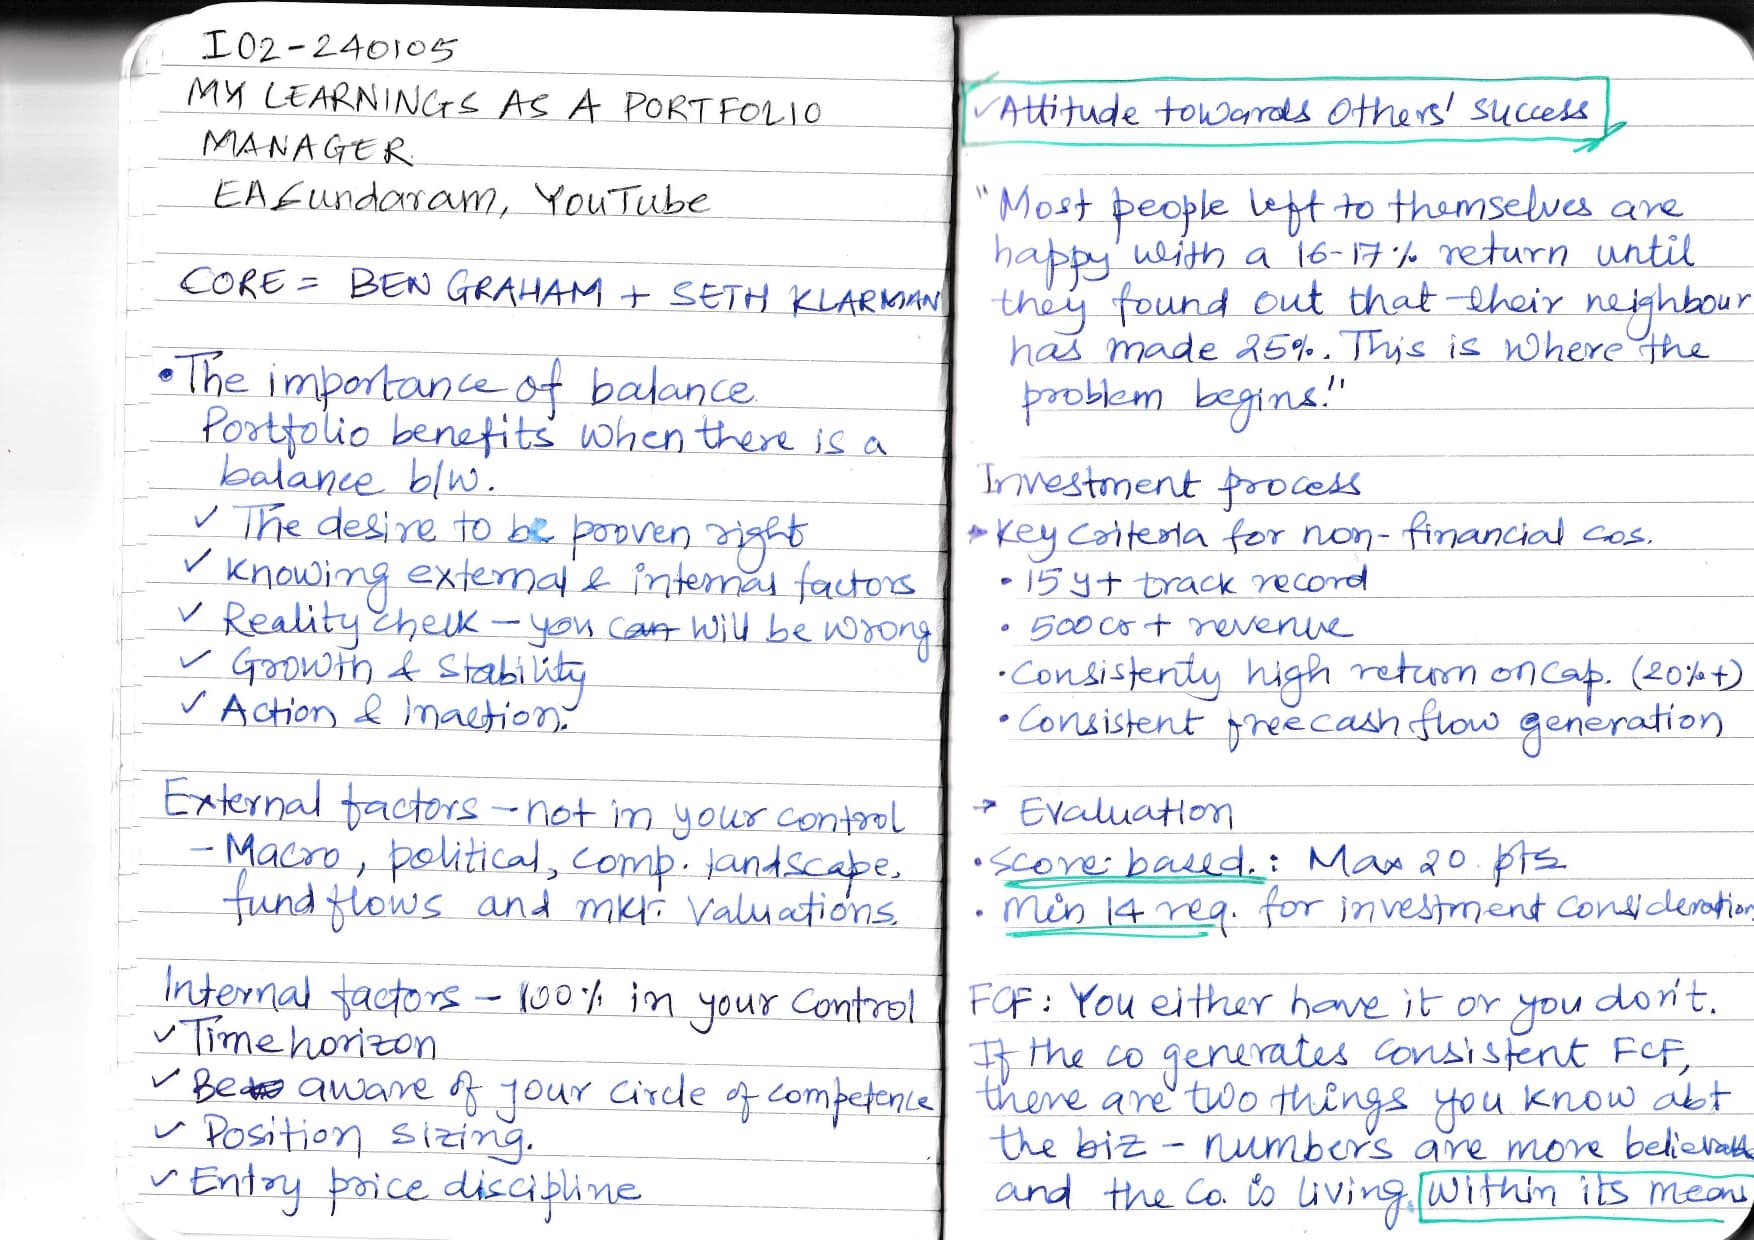 I02-240105
MY LEARNINGS AS A PORTFOLIO
MANAGER.
EASundaram, YouTube
CORE = BEN GRAHAM + SETH KLARMAN
• The importance of balance.
Portfolio benefits when there is a
balance b/w.
✓ The desire to be proven right
✓ Knowing external & internal factors
✓ Reality check – you can will be wrong
✓ Growth & Stability
✓ Action & inaction.
External factors – not in your control
– Macro, political, comp. landscape,
fund flows and mkt. valuations.
Internal factors – 100% in your control
✓ Time horizon
✓ Be aware of your circle of competence
✓ Position sizing.
✓ Entry price discipline
✓ Attitude towards others' success
"Most people left to themselves are
happy with a 16-17% return until
they found out that their neighbour
has made 25%. This is where the
problem begins!"
Investment process
→ Key Criteria for non-financial cos.
• 15y+ track record
• 500cr+ revenue
• Consistently high return on cap. (20%+)
• Consistent free cash flow generation
→ Evaluation
• Score-based.: Max 20 pts
• Min 14 req. for investment consideration
FCF: You either have it or you don't.
If the co generates consistent FCF,
there are two things you know abt
the biz – numbers are more believable
and the co. is living within its means